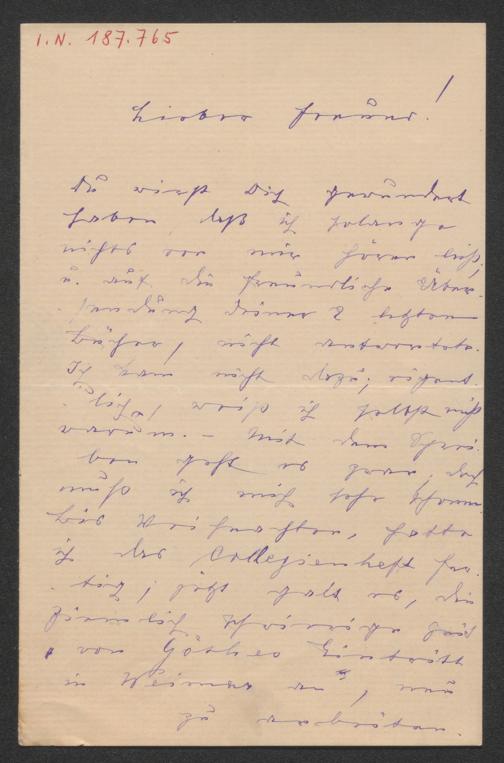 I.N. 187.765
Lieber Freund!
Du wirst Dich gewundert
haben daß ich solange
nichts von mir hören ließ,
u. auf die freundliche Über-
sendung deiner 2 letzten
Bücher, nicht antwortete.
Ich kam nicht dazu, eigent-
lich, weiß ich selbst nicht
warum. – Mit dem Schrei-
ben geht es ganz, doch
muß ich mich sehr schonen
bis Weihnachten, hatte
ich das Collegienheft fer-
tig, jetzt galt es, die
ziemlich schwierige Zeit
von Göthes Eintritt
in Weimar an, neu
zu verarbeiten.